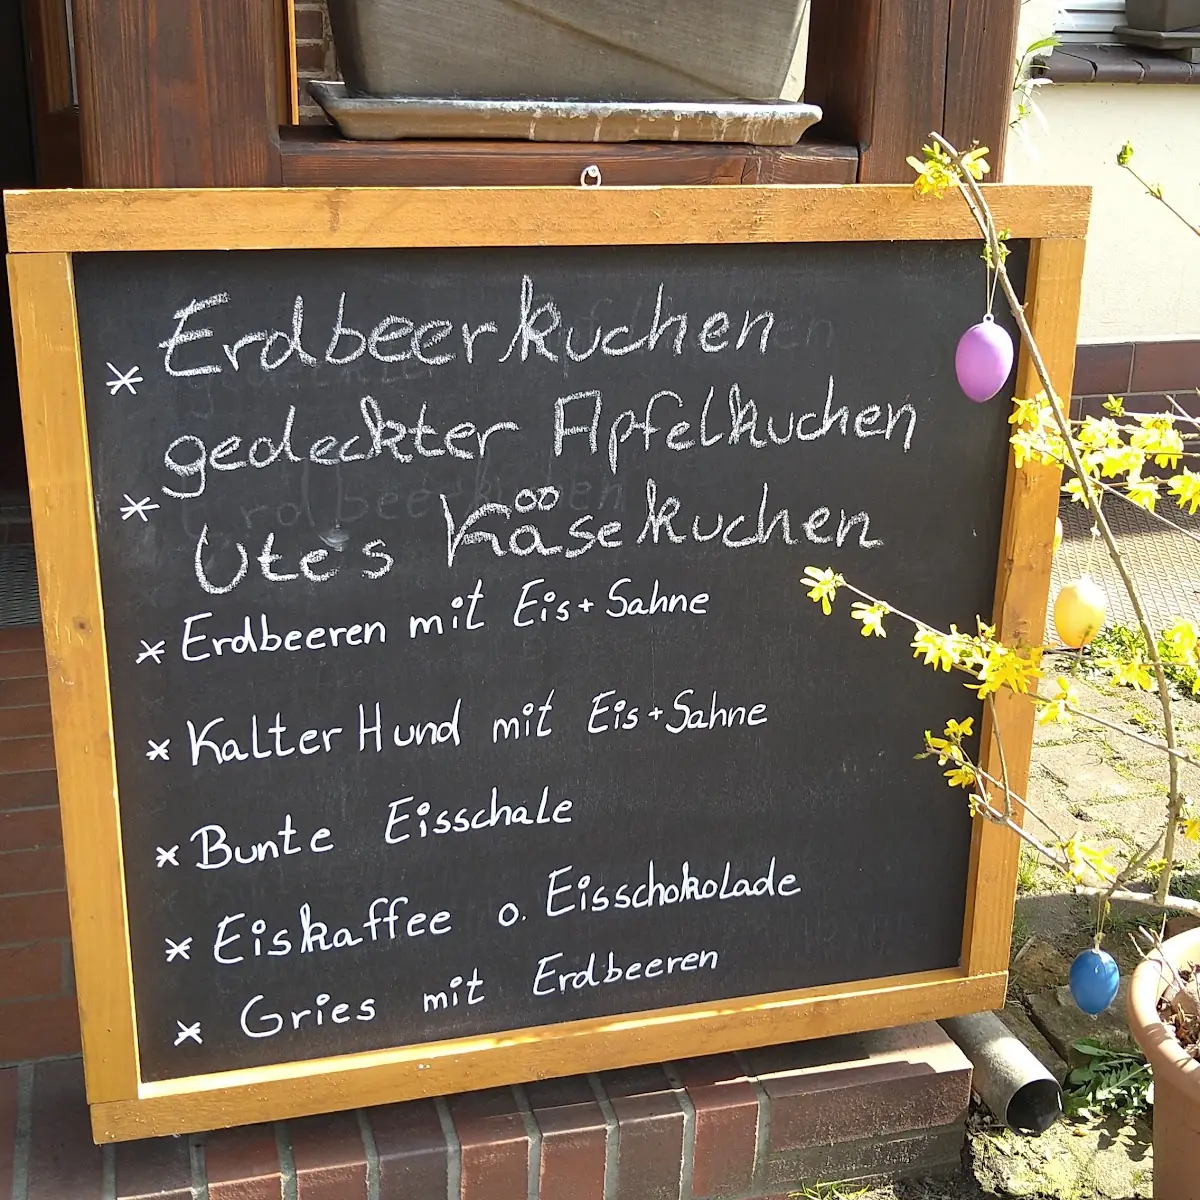 * Erdbeerkuchen
gedeckter Apfelkuchen
* Ute's Käsekuchen
* Erdbeeren mit Eis+Sahne
* Kalter Hund mit Eis+Sahne
* Bunte Eisschale
* Eiskaffee o. Eisschokolade
* Gries mit Erdbeeren